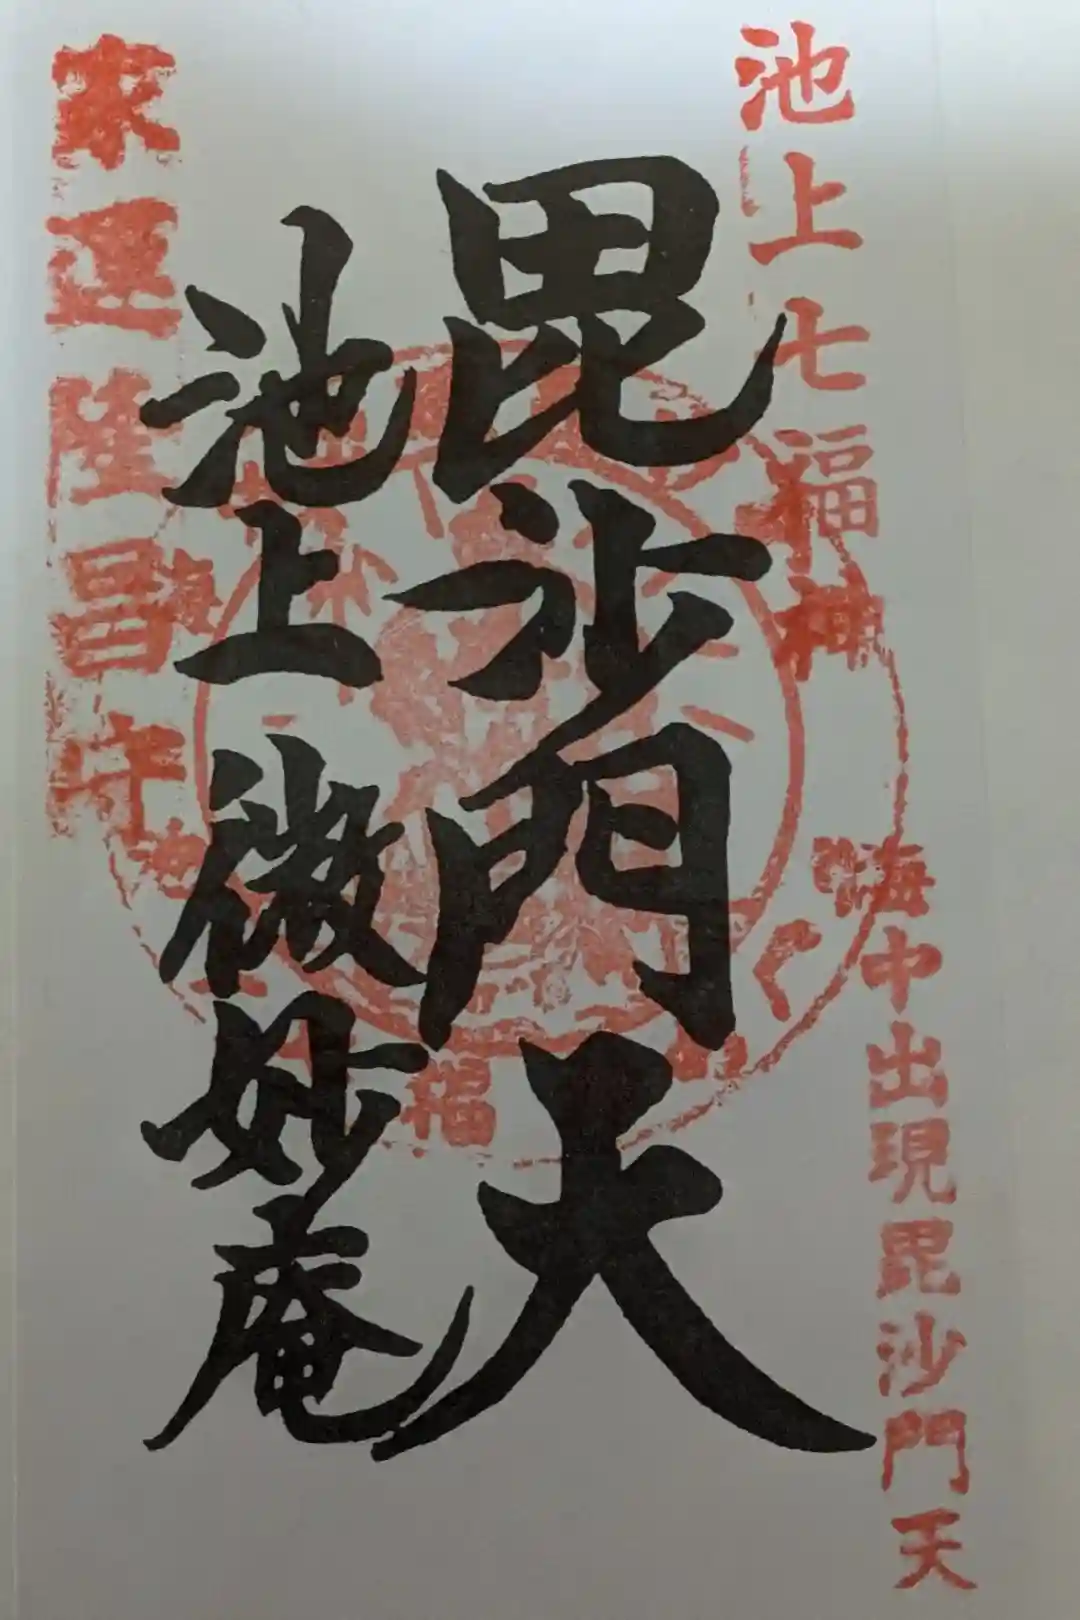 池上七福神
海中出現毘沙門天
毘沙門天
池上 微妙庵
家運隆昌守
福